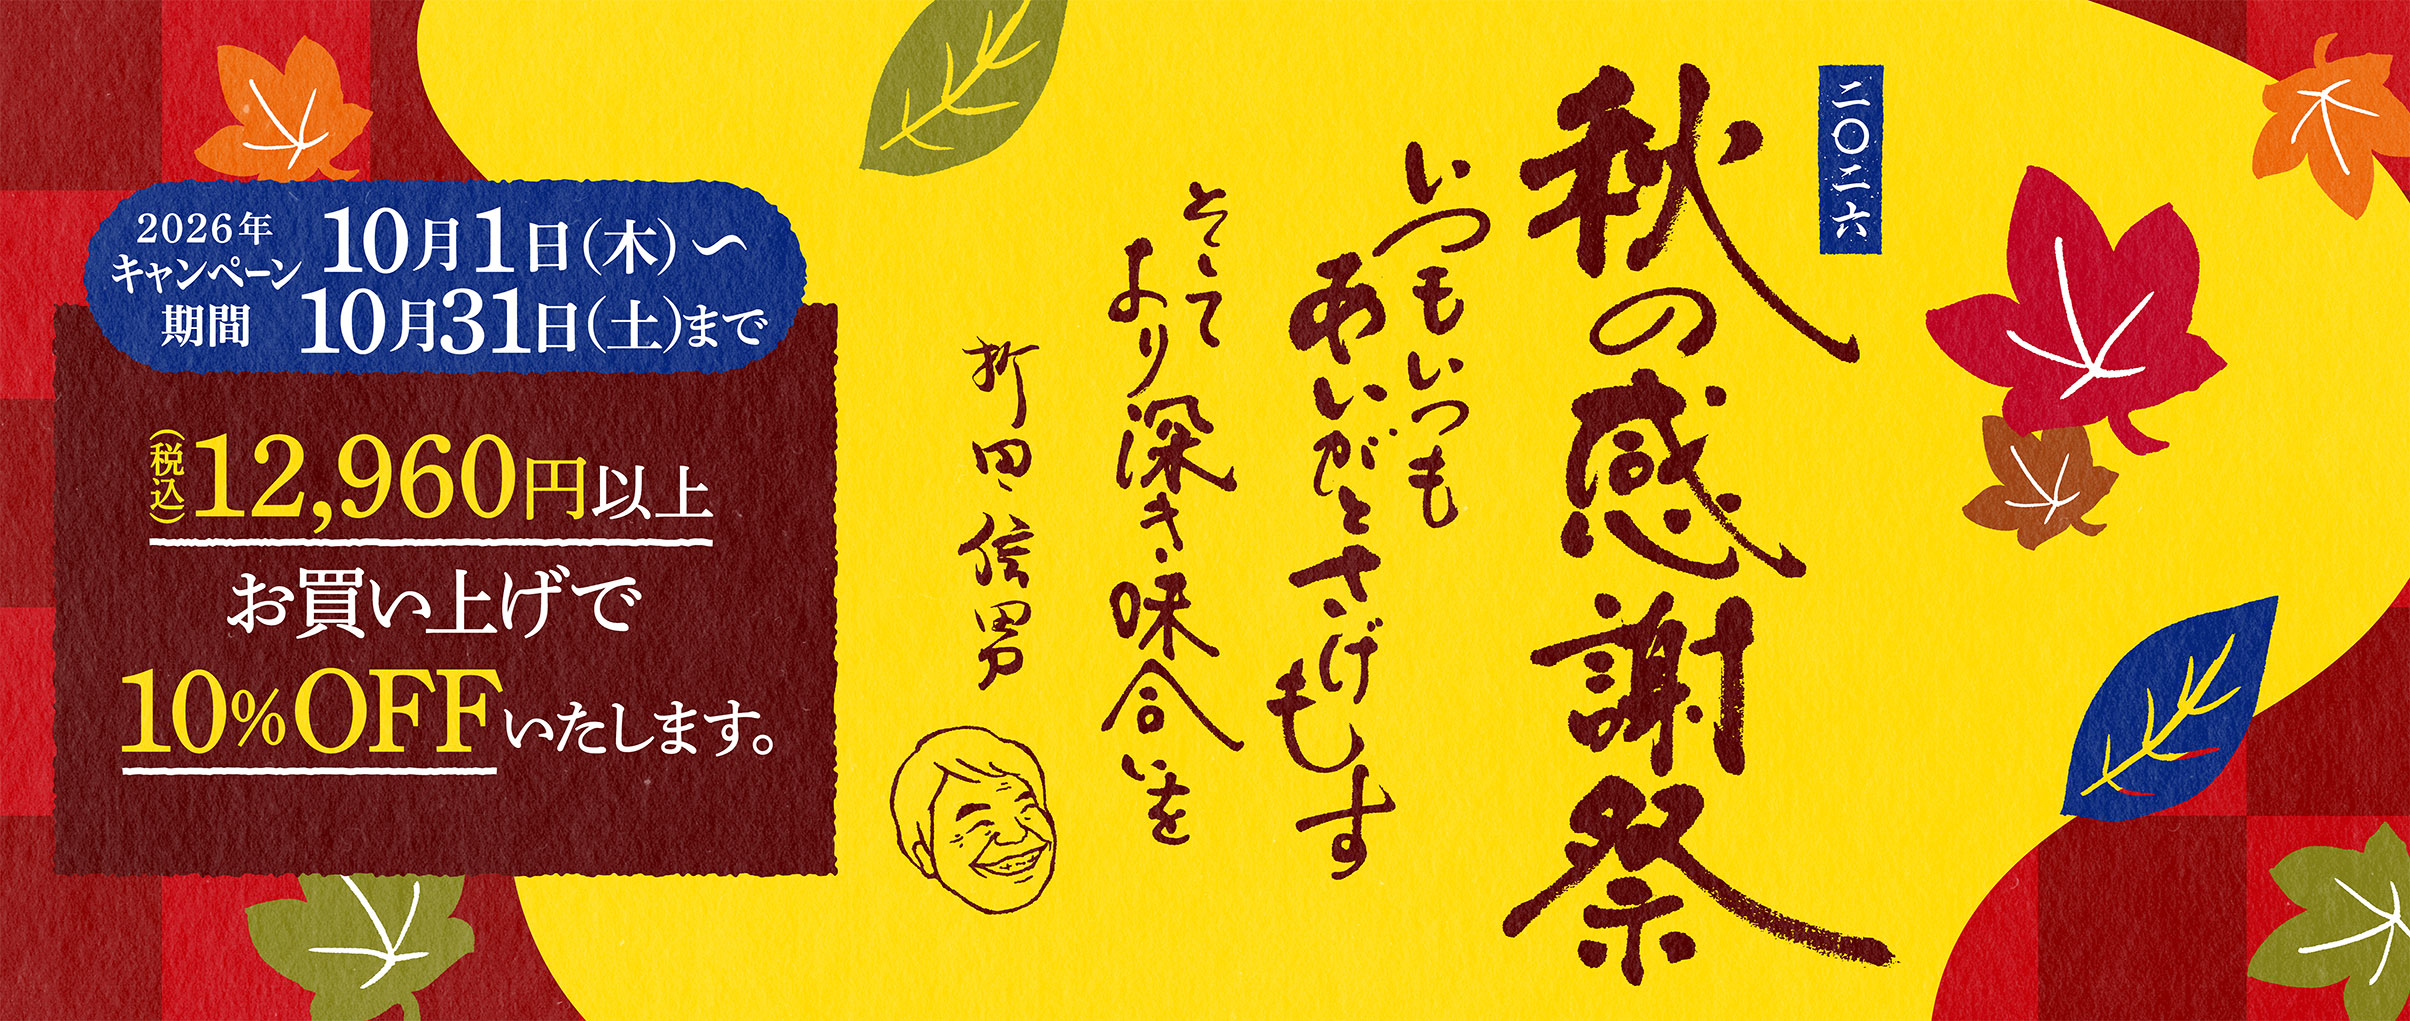 二〇二六
秋の感謝祭
いつもいつも
あいがとさげもす
そして
より深き味合いを
折田信男
2026年
キャンペーン
期間
10月1日(木)〜
10月31日(土)まで
(税込)12,960円以上
お買い上げで
10%OFFいたします。